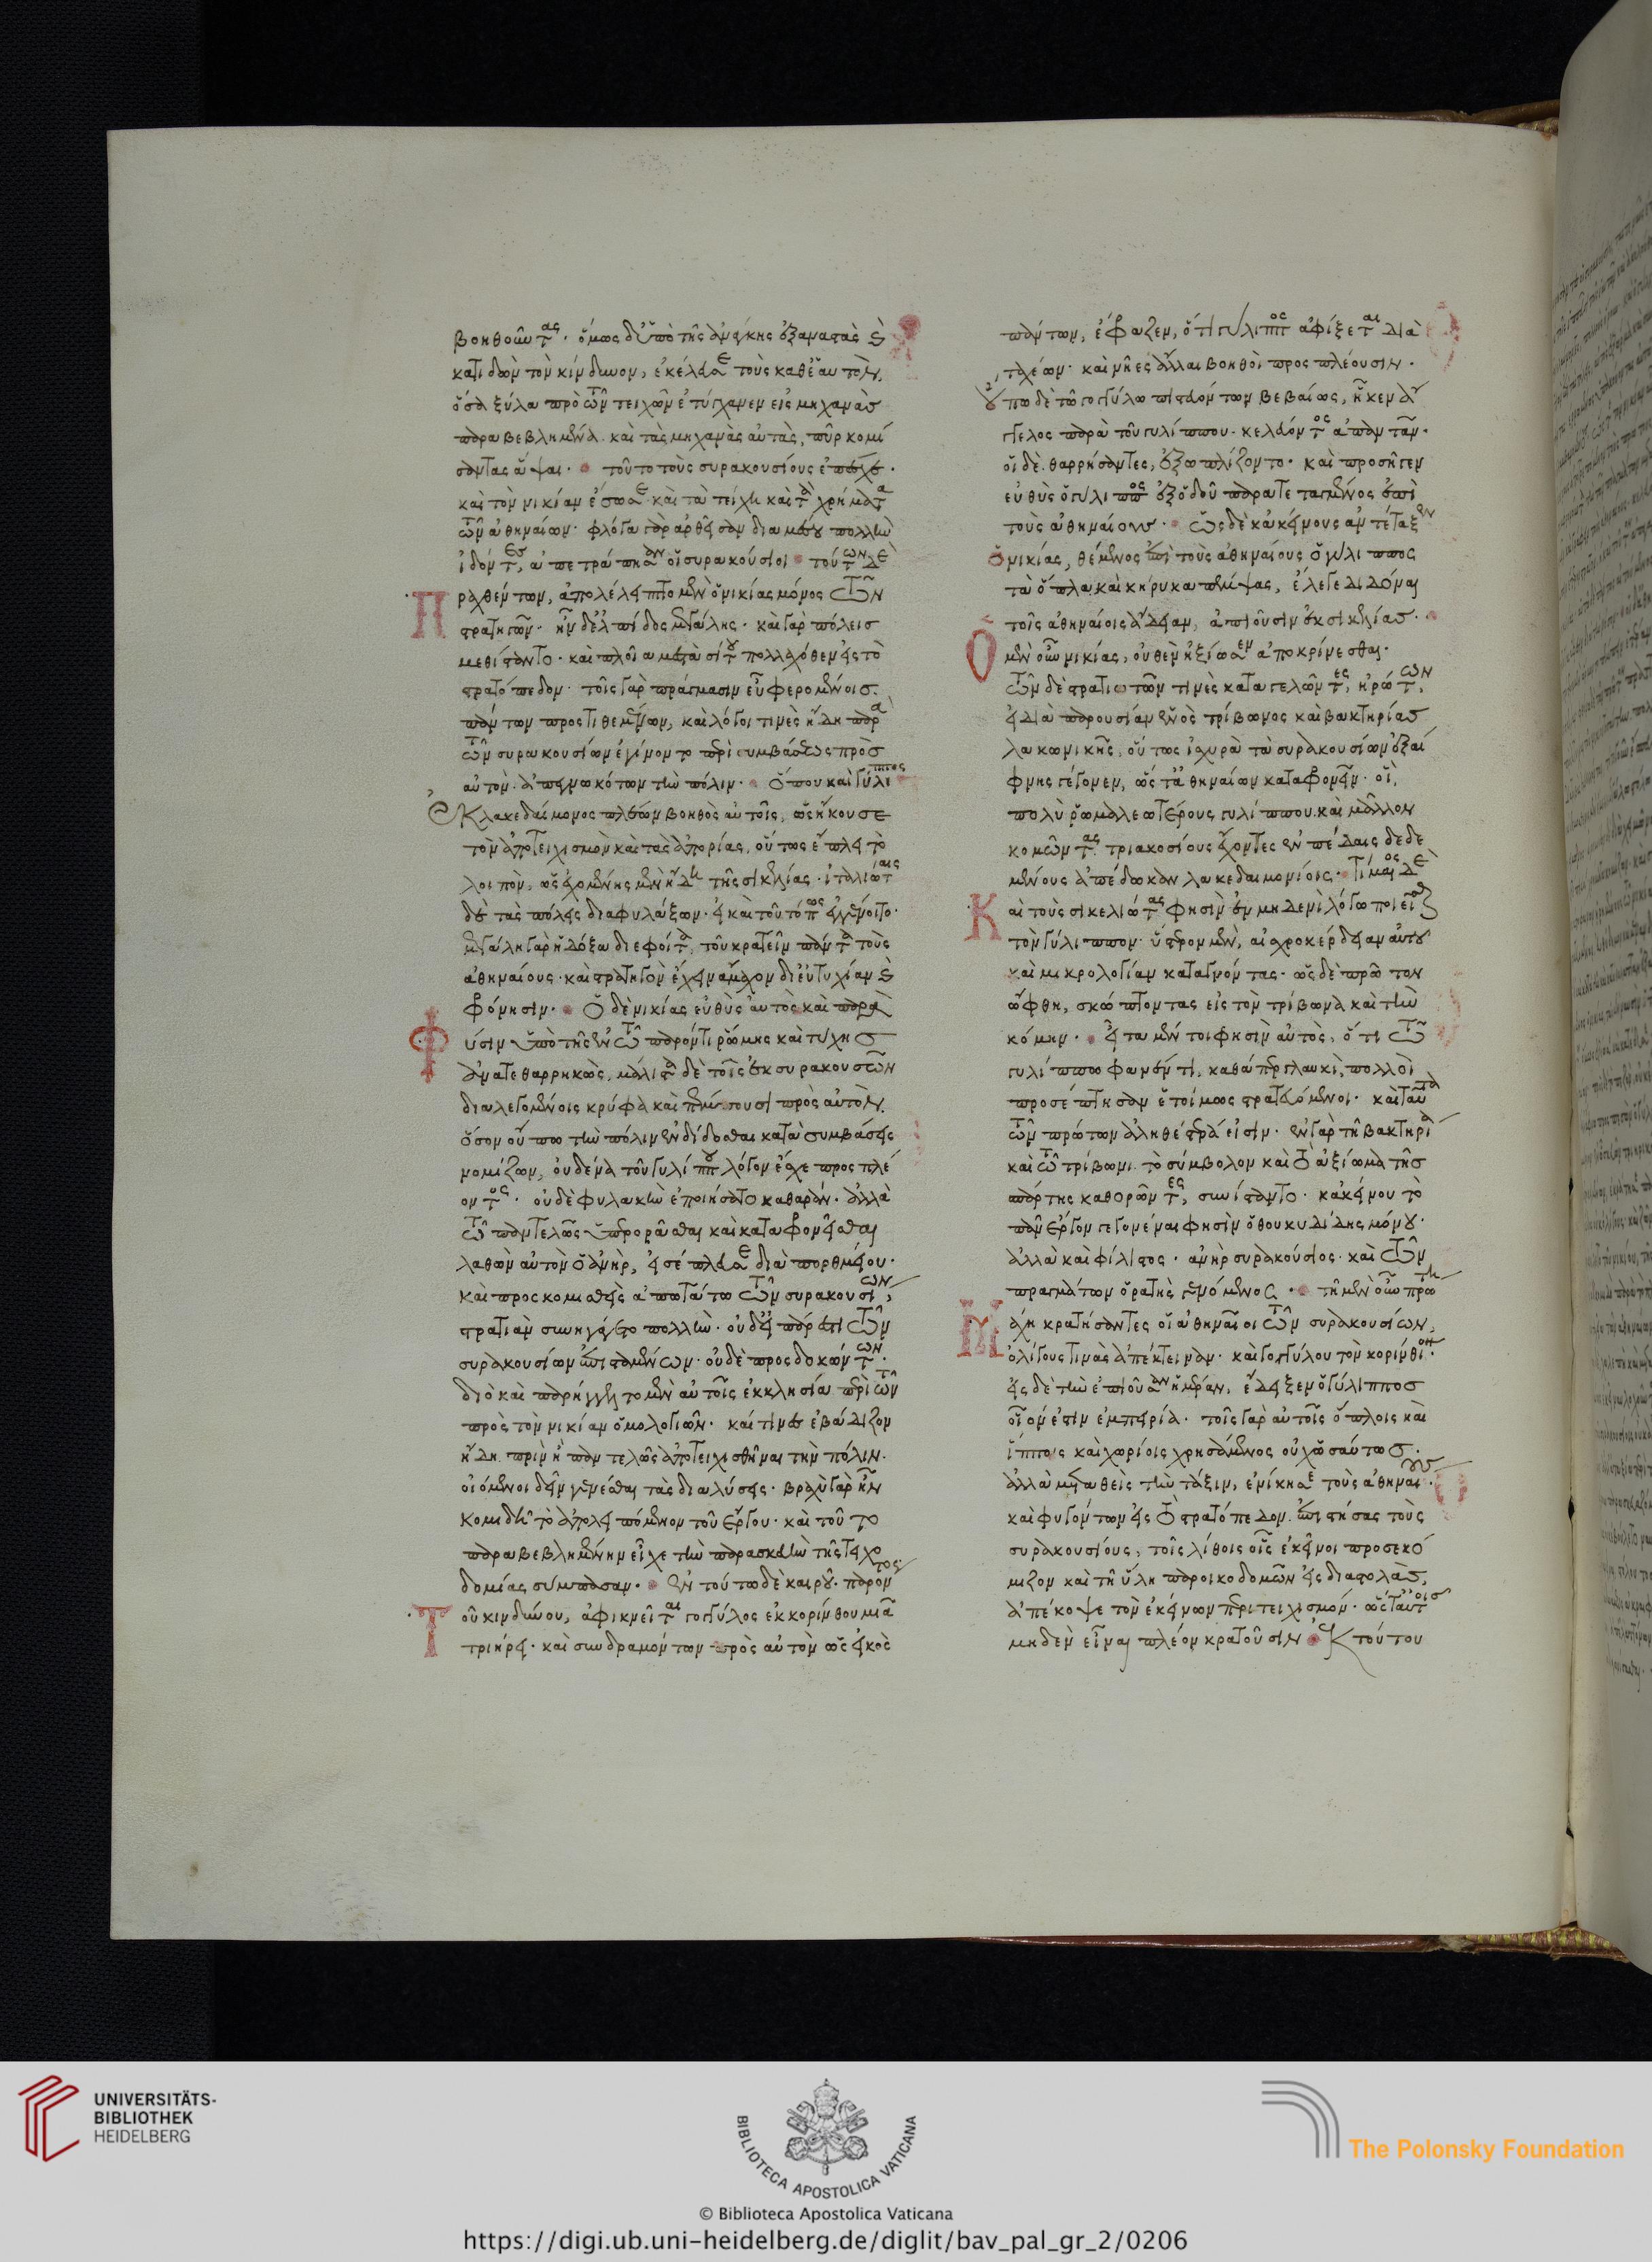 βοηθοῦντας. ὅμως δ' ὑπὸ τῆς ἀνάγκης ἐξαναστὰς καὶ
κατιδὼν τὸν κίνδυνον, ἐκέλευσε τοὺς καθ' ἑαυτὸν,
ὅσα ξύλα πρὸ τῶν τειχῶν ἐτύγχανεν εἰς μηχανὰς
παραβεβλημένα. καὶ τὰς μηχανὰς αὐτὰς, πῦρ κομί
σαντας ἅψαι. τοῦτο τοὺς συρακουσίους ἐπέσχε.
καὶ τὸν νικίαν ἔσωσε καὶ τὰ τείχη καὶ τὰ χρήματα
τῶν ἀθηναίων. φλόγα γὰρ ἀρθεῖσαν διαμέσου πολλὴν
ἰδόντες, ἀπετράπησαν οἱ συρακούσιοι τούτων δὲ
Πραχθέντων, ἀπολέλειπτο μὲν ὁ νικίας μόνος τῶν
στρατηγῶν. ἦν δ' ἐλπίδος μεγάλης. καὶ γὰρ πόλεις
μεθίσταντο. καὶ πλοῖα μεστὰ σίτου πολλαχόθεν εἰς τὸ
στρατόπεδον. τοῖς γὰρ πράγμασιν εὖ φερομένοις.
πάντων προστιθεμένων, καὶ λόγοι τινὲς ἤδη παρὰ
τῶν συρακουσίων ἐγίνοντο περὶ συμβάσεως πρὸς
αὐτὸν. ἀπεγνωκότων τὴν πόλιν. ὅπου καὶ Γύλιππος
ἐκ λακεδαίμονος πλέων βοηθὸς αὐτοῖς, ὡς ἤκουσε
τὸν ἀποτειχισμὸν καὶ τὰς ἀπορίας, οὕτως ἔπλει τὸ
λοιπὸν, ὡς ἐχομένης μὲν ἤδη τῆς σικελίας. ἰταλιώταις
δὲ τὰς πόλεις διαφυλάξων. εἰ καὶ τοῦτό πως ἐγγένοιτο.
μεγάλη γὰρ ἡ δόξα διεφοίτα, τοῦ κρατεῖν πάντα τοὺς
ἀθηναίους. καὶ στρατηγὸν ἔχειν ἄμαχον δι' εὐτυχίαν καὶ
φρόνησιν. Ὁ δὲ νικίας εὐθὺς αὐτὸς καὶ παρὰ
Φύσιν ὑπὸ τῆς ἐν τῷ παρόντι ῥώμης καὶ τύχης
ἀνατεθαρρηκὼς, μάλιστα δὲ τοῖς ἐκ συρακουσῶν
διαλεγομένοις κρύφα καὶ πέμπουσι πρὸς αὐτὸν.
ὅσον οὔπω τὴν πόλιν ἐνδίδοσθαι κατὰ συμβάσεις
νομίζων, οὐδένα τοῦ Γυλίππου λόγον ἔσχε προσπλέ
οντος. οὐδὲ φυλακὴν ἐποιήσατο καθαράν. ἀλλὰ
τῷ παντελῶς ὑπερορᾶσθαι καὶ καταφρονεῖσθαι
λαθὼν αὐτὸν ὁ ἀνὴρ, εἰσέπλευσε διὰ πορθμείου.
καὶ προσκομισθεὶς ἀπωτάτω τῶν συρακουσίων,
στρατιὰν συνηγάγετο πολλὴν. οὐδ' εἰ πάρεστι τῶν
συρακουσίων ἐπισταμένων. οὐδὲ προσδοκώντων.
διὸ καὶ παρήγγελτο μὲν αὐτοῖς ἐκκλησία περὶ τῶν
πρὸς τὸν νικίαν ὁμολογιῶν. καί τινες ἐβάδιζον
ἤδη. πρὶν ἢ παντελῶς ἀποτειχισθῆναι τὴν πόλιν.
οἰόμενοι δεῖν γενέσθαι τὰς διαλύσεις. βραχὺ γὰρ ἦν
κομιδῆ τὸ ἀπολειπόμενον τοῦ ἔργου. καὶ τοῦτο
παραβεβλημένην εἶχε τὴν παρασκευὴν τῆς τειχο
δομίας σύμπασαν. ἐν τούτω δὲ καιροῦ. παρόντος
Τοῦ κινδύνου, ἀφικνεῖται γογγύλος ἐκ κορίνθου μιᾶ
τριήρει. καὶ συνδραμόντων πρὸς αὐτὸν ὡς εἰκὸς
πάντων, ἔφραζεν, ὅτι γύλιππος ἀφίξεται διὰ
ταχέων. καὶ νῆες ἄλλαι βοηθοὶ προσπλέουσιν.
οὔπω δὲ τῶ γογγύλω πιστευόντων βεβαίως, ἧκεν ἄγ
γελος παρὰ τοῦ γυλίππου. κελεύοντος ἀπαντᾶν.
οἱ δὲ θαρρήσαντες, ἐξωπλίζοντο. καὶ προσῆγεν
εὐθὺς ὁ γύλιππος ἐξ ὁδοῦ παρατεταγμένος ἐπὶ
τοὺς ἀθηναίους. ὡς δὲ κἀκείνους ἀντέταξεν
ὁ νικίας, θέμενος ἐπὶ τοὺς ἀθηναίους ὁ γύλιππος
τὰ ὅπλα. καὶ κήρυκα πέμψας, ἔλεγε διδόναι
τοῖς ἀθηναίοις ἄδειαν, ἀπιοῦσιν ἐκ σικελίας.
Ὁ μὲν οὖν νικίας, οὐθὲν ἠξίωσεν ἀποκρίνεσθαι.
τῶν δὲ στρατιωτῶν τινὲς καταγελῶντες, ἠρώτων,
εἰ διὰ παρουσίαν ἑνὸς τρίβωνος καὶ βακτηρίας
λακωνικῆς, οὕτως ἰσχυρὰ τὰ συρακουσίων ἐξαί
φνης γέγονεν, ὥστ' ἀθηναίων καταφρονεῖν. οἳ,
πολὺ ῥωμαλεωτέρους γυλίππου. καὶ μᾶλλον
κομῶντας. τριακοσίους ἔχοντες ἐν πέδαις δεδε
μένους ἀπέδωκαν λακεδαιμονίοις. Τίμαιος δὲ
Καὶ τοὺς σικελιώτας φησὶν ἐν μηδενὶ λόγω ποιεῖσθαι
τὸν Γύλιππον. ὕστερον μὲν, αἰσχροκέρδειαν αὐτοῦ
καὶ μικρολογίαν καταγνόντας. ὡς δὲ πρῶτον
ὤφθη, σκώπτοντας εἰς τὸν τρίβωνα καὶ τὴν
κόμην. εἶτα μέντοι φησὶν αὐτὸς, ὅτι τῶ
γυλίππω φανέντι, καθάπερ γλαυκὶ, πολλοὶ
προσέπτησαν ἑτοίμως στρατευόμενοι. καὶ ταῦτα
τῶν πρώτων ἀληθέστερά εἰσιν. ἐν γὰρ τῆ βακτηρία
καὶ τῶ τρίβωνι τὸ σύμβολον καὶ τὸ ἀξίωμα τῆς
σπάρτης καθορῶντες, συνίσταντο. κἀκείνου τὸ
πᾶν ἔργον γεγονέναι φησὶν ὁ θουκυδίδης μόνου.
ἀλλὰ καὶ φίλιστος. ἀνὴρ συρακούσιος. καὶ τῶν
πραγμάτων ὁρατὴς γενόμενος. τῆ μὲν οὖν πρώτη
Μάχη κρατήσαντες οἱ ἀθηναῖοι τῶν συρακουσίων,
ὀλίγους τινὰς ἀπέκτειναν. καὶ Γογγύλον τὸν κορίνθιον.
εἰς δὲ τὴν ἐπιοῦσαν ἡμέραν, ἔδειξεν ὁ Γύλιππος
οἷόν ἐστιν ἐμπειρία. τοῖς γὰρ αὐτοῖς ὅπλοις καὶ
ἵπποις καὶ χωρίοις χρησάμενος οὐχ ὡσαύτως.
ἀλλὰ μεταθεὶς τὴν τάξιν, ἐνίκησε τοὺς ἀθηναίους.
καὶ φυγόντων εἰς τὸ στρατόπεδον. ἐπιστήσας τοὺς
συρακουσίους, τοῖς λίθοις οἷς ἐκεῖνοι προσεκό
μιζον καὶ τῆ ὕλη παροικοδομῶν εἰς διαστολὰς,
ἀπέκοψε τὸν ἐκείνων περιτειχισμόν. ὥστ' αὐτοῖς
μηδὲν εἶναι πλέον κρατοῦσιν Ἐκ τούτου
UNIVERSITÄTS-
BIBLIOTHEK
HEIDELBERG
BIBLIOTECA APOSTOLICA VATICANA
The Polonsky Foundation
© Biblioteca Apostolica Vaticana
https://digi.ub.uni-heidelberg.de/diglit/bav_pal_gr_2/0206